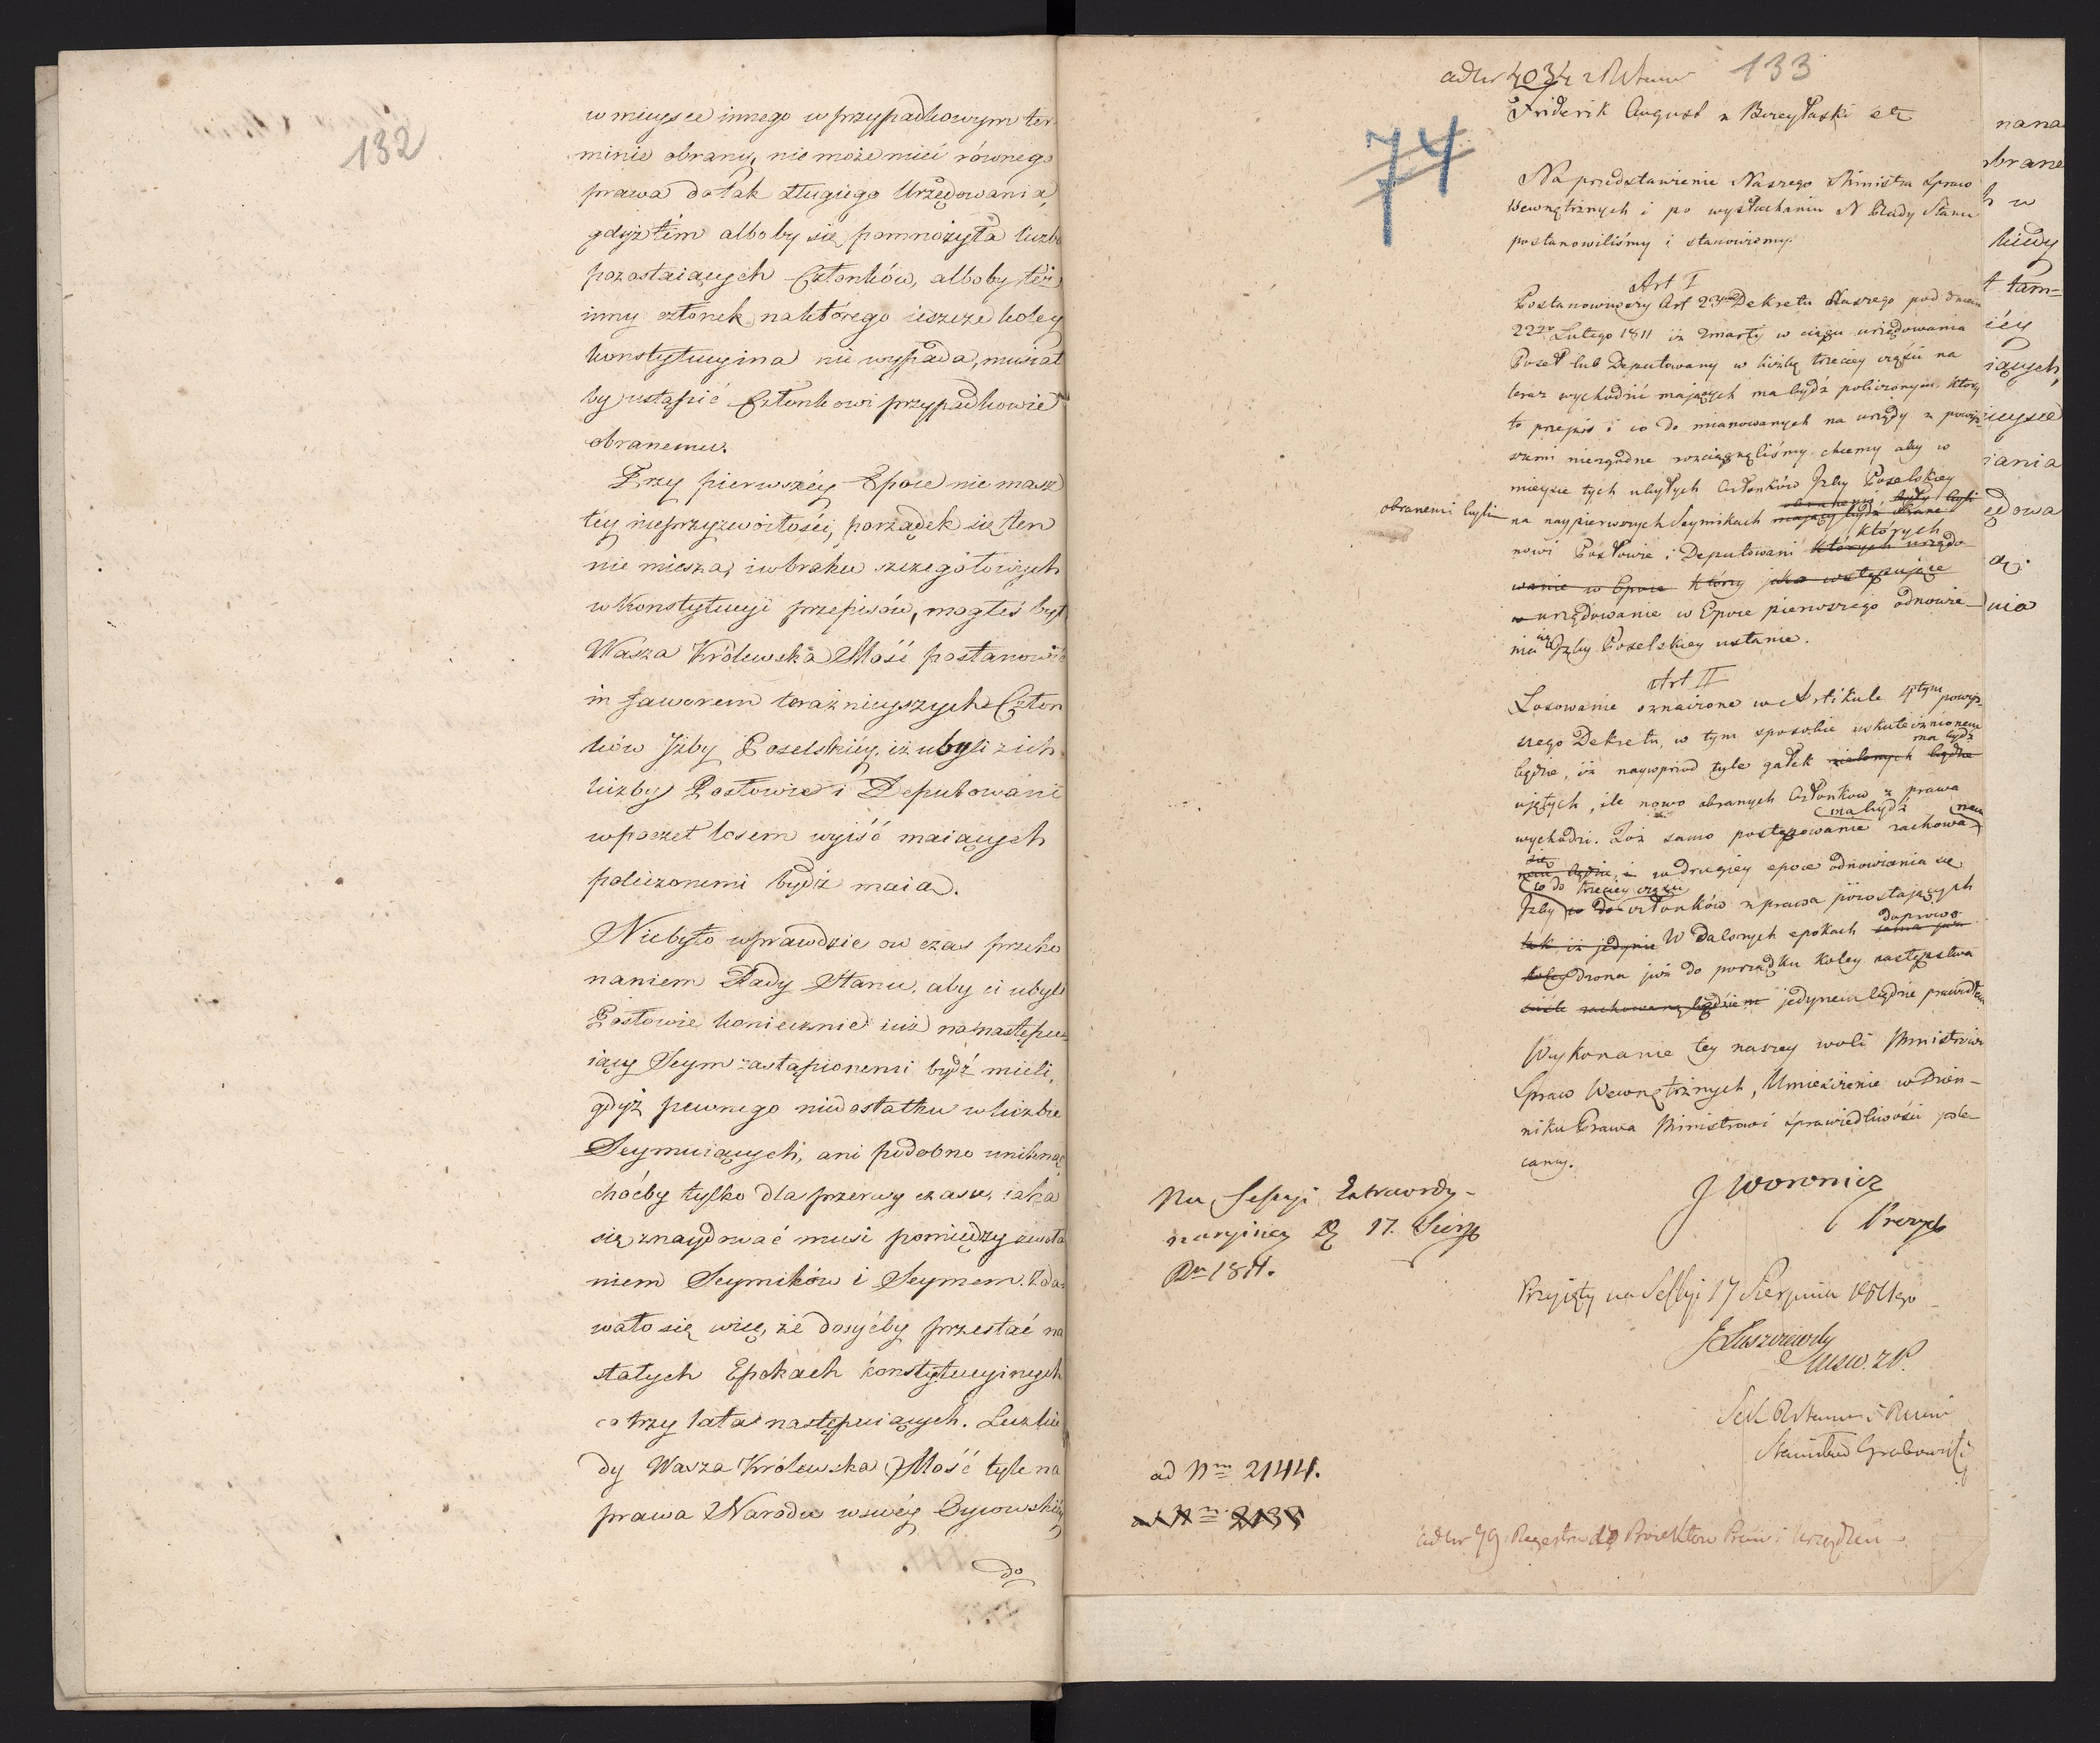 132
w mieysce innego w przypadkowym ter
minie obrany, nie może mieć równego
prawa do tak długiego Urzędowania,
gdyż tém alboby się pomnożyła liczba
pozostaiących Członków, alboby też
inny członek, na którego ieszcze koley
konstytucyina nie wypada, musiał
by ustąpić Członkowi przypadkowie
obranemu.
Przy pierwszéy Epoce nie masz
téy nieprzyzwoitości, porządek się ten
nie miesza, i w braku szczegółowych
w Konstytucyi przepisów, mogłeś być
Wasza Królewska Mość postanowić
in favorem teraźnieyszych Człon
ków Izby Poselskiéy, iż ubyli z ich
liczby Posłowie i Deputowani
w poczet losem wyiść maiących
policzonemi bydź maią.
Niebyło wprawdzie ow czas przeko
naniem Rady Stanu, aby ci ubyli
Posłowie koniecznie iuż na następu
iący Seym zastąpionemi bydź mieli,
gdyż pewnego niedostatku w liczbie
Seymuiących, ani podobno uniknąć
choćby tylko dla przerwy czasu, iaka
się znaydować musi pomiędzy zwoła
niem Seymików i Seymem. Zda
wało się więc, że dosyćby przestać na
stałych Epokach konstytucyinych
co trzy lata następuiących. Lecz kie
dy Wasza Królewska Mość tyle na
prawa Narodu w swéy Oycowskiéy
do
ad Nr 4034 133
74
Friderik August z Bożey Łaski etc
Na przedstawienie Naszego Ministra Spraw
Wewnętrznych i po wysłuchaniu N Rady Stanu
postanowiliśmy i stanowiemy.
Art I
Postanowiwszy Art 23 Dekretu Naszego pod dniem
22go Lutego 1811 iż zmarły w ciągu urzędowania
Poseł lub Deputowany w liczbę trzeciey części na
teraz wychodzić mających ma bydź policzonym, który
to przepis i co do mianowanych na urzędy z powyż
szemi niezgodne rozciągnęliśmy. chcemy aby w
mieysce tych ubyłych Członków Izby Poselskiey
obranemi byli na naypierwszych Seymikach mający bydź obrane
nowi Posłowie i Deputowani których urzędo- których
wanie w Epoce którzy jako wstępujące
w urzędowanie w Epoce pierwszego odnowie-
nia się Izby Poselskiey ustanie.
Art II
Losowanie oznaczone w Artikule 4tym powyż-
szego Dekretu, w tym sposobie uskutecznionem
będzie, iż naywprzód tyle gałek zielonych będzie ma bydź
ujętych, ile nowo obranych Członkow z prawa
wychodzi. Toż samo postępowanie ma bydź zachowa- nem
nem będzie, i w drugiey epoce odnowienia się
Izby co do trzeciey części członków z prawa pozostających
tak iż jedynie W dalszych epokach doprowa-
dzona już do porządku koley następstwa
ściśle zachowaną będzie jedynem będzie prawidłem
Wykonanie tey naszey woli Ministrowi
Spraw Wewnętrznych, Umieszczenie w Dzien-
niku Prawa Ministrowi sprawiedliwości pole-
camy.
J Woronicz
Prezyd
Na Sessyi Extraordy-
naryiney D 17. Sierp
Ru 1811.
Przyięty na Sessyi 17 Sierpnia 1811go
J Łuszczewski
Stanisław Grabowski
ad Nm 2144.
ad Nm 2138
ad Nr 79 Regestru do Proiektow Praw i Urządzeń
nana
obrane
h w
kiedy
t tam=
iéy
iących,
ieysce
iania
ędowa
ą.
nia